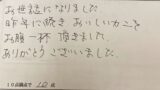 お世話になりました
昨年に続き おいしいカニを
お腹一杯 頂きました
ありがとうございました。
10点満点で 10 点